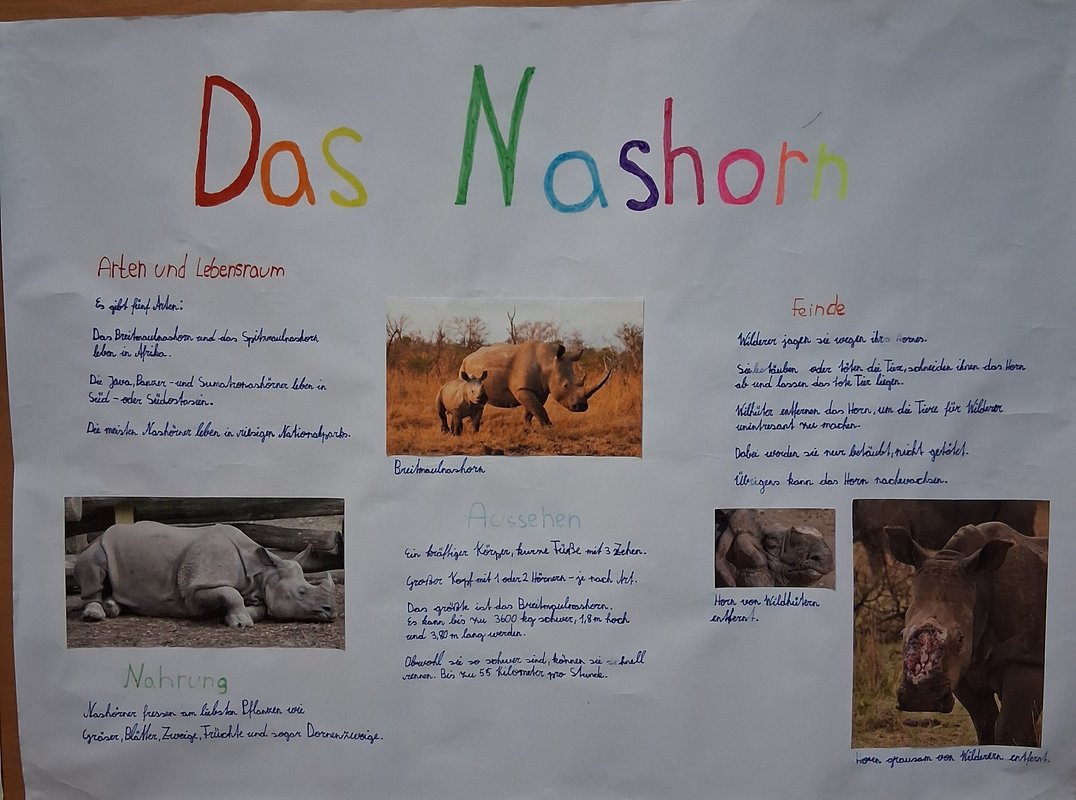 Das Nashorn
Arten und Lebensraum
Es gibt fünf Arten:
Das Breitmaulnashorn und das Spitzmaulnashorn
leben in Afrika.
Die Java, Panzer- und Sumatranashörner leben in
Süd- oder Südostasien.
Die meisten Nashörner leben in riesigen Nationalparks.
Nahrung
Nashörner fressen am liebsten Pflanzen wie
Gräser, Blätter, Zweige, Früchte und sogar Dornenzweige.
Breitmaulnashorn
Aussehen
Ein kräftiger Körper, kurze Füße mit 3 Zehen.
Großer Kopf mit 1 oder 2 Hörnern - je nach Art.
Das größte ist das Breitmaulnashorn.
Es kann bis zu 3600 kg schwer, 1,8 m hoch
und 3,80 m lang werden.
Obwohl sie so schwer sind, können sie schnell
rennen. Bis zu 55 Kilometer pro Stunde.
Feinde
Wilderer jagen sie wegen ihres Hornes.
Sie betäuben oder töten die Tiere, schneiden ihnen das Horn
ab und lassen das tote Tier liegen.
Wilhüter entfernen das Horn, um die Tiere für Wilderer
unintresant zu machen.
Dabei werden sie nur betäubt, nicht getötet.
Übrigens kann das Horn nachwachsen.
Horn von Wildhütern
entfernt.
grausam von Wilderern entfernt.